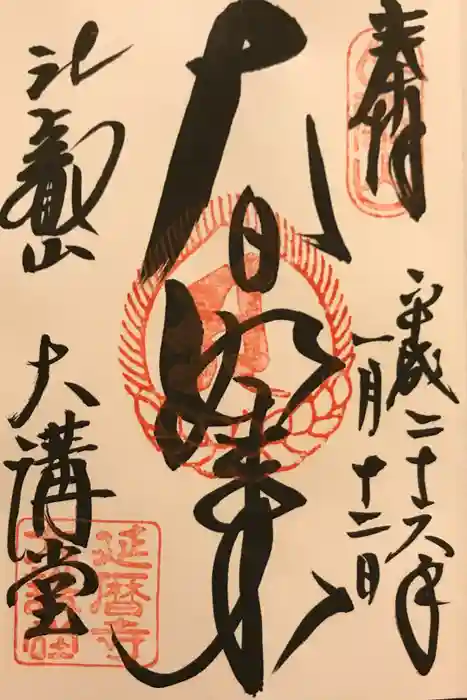 奉拝
平成二十六年
一月十二日
大日如来
比叡山
大講堂
延暦寺